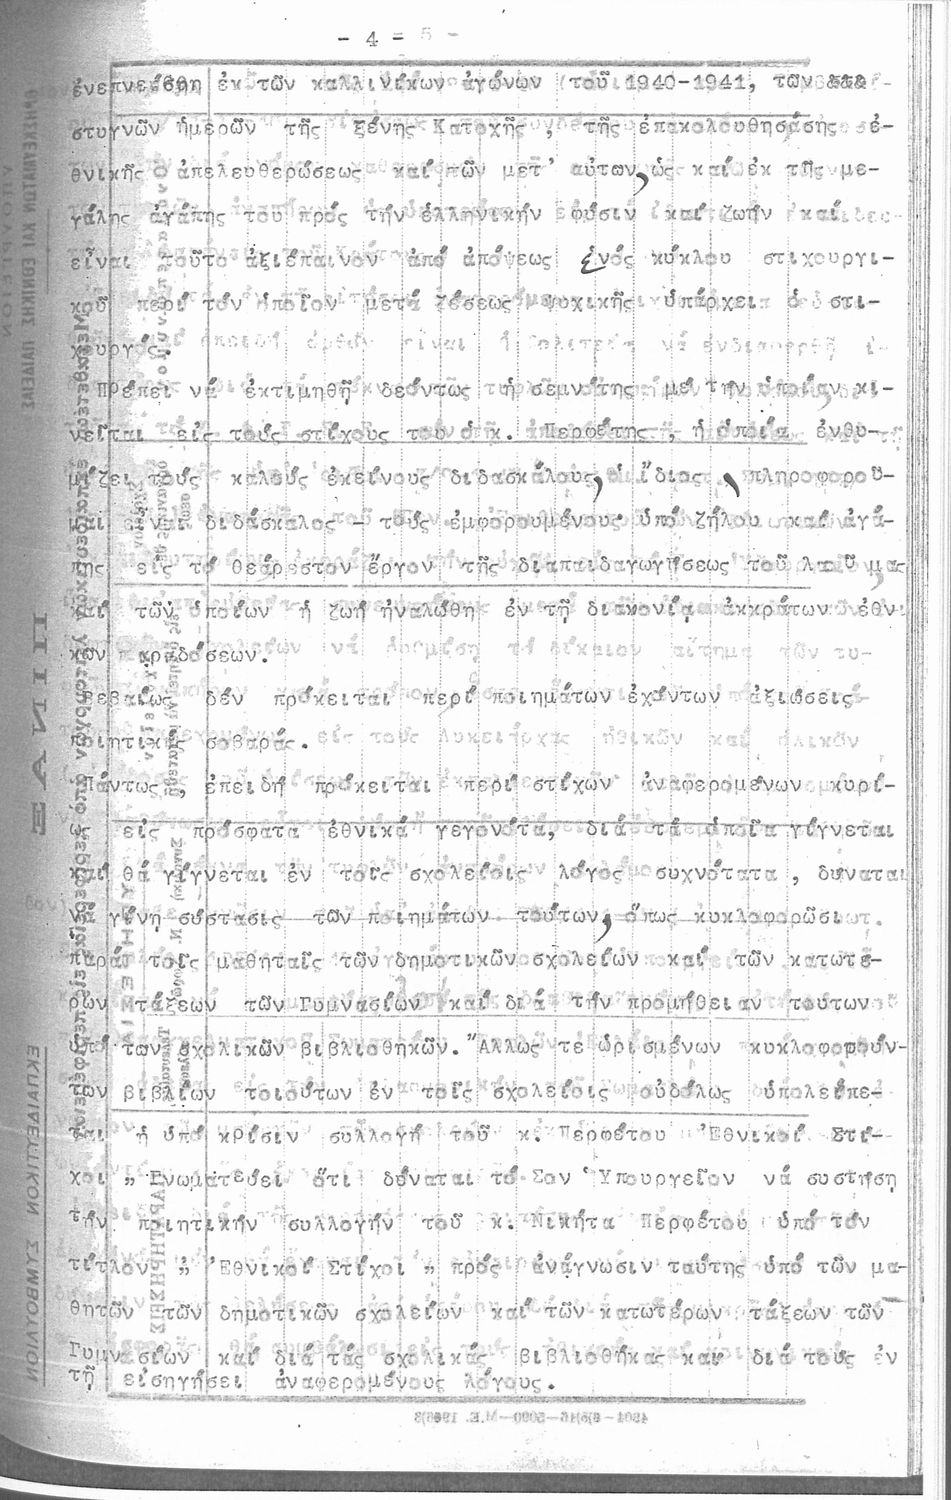 - 4 = 5 -
ἐνεπνεύσθη ἐκ τῶν καλλινίκων ἀγώνων τοῦ 1940-1941, τῶν
στυγνῶν ἡμερῶν τῆς ξένης Κατοχῆς , τῆς ἐπακολουθησάσης ἐ-
θνικῆς ἀπελευθερώσεως καί τῶν μετ' αὐτων, ὡς καί ἐκ τῆς με-
γάλης ἀγάπης του πρός τήν ἑλληνικήν φύσιν καί ζωήν καί
εἶναι τοῦτο ἀξιέπαινον ἀπό ἀπόψεως ἑνός κύκλου στιχουργι-
κοῦ περί τόν ὁποῖον μετά ζέσεως ψυχικῆς ὑπάρχει ὁ στι-
χουργός.
Πρέπει νά ἐκτιμηθῇ δεόντως ἡ σεμνότης μέ τήν ὁποίαν κι-
νεῖται εἰς τούς στίχους του ὁ κ. Περφέτης , ἡ ὁποία ἐνθυ-
μίζει τούς καλούς ἐκείνους διδασκάλους, ὁ ἴδιος , πληροφοροῦ-
μαι εἶναι διδάσκαλος - τούς ἐμφορουμένους ὑπό ζήλου καί ἀγά-
πης εἰς τό θεάρεστον ἔργον τῆς διαπαιδαγωγήσεως τοῦ λαοῦ μας
καί τῶν ὁποίων ἡ ζωή ἠναλώθη ἐν τῇ διακονίᾳ ἀκκράτων ἐθνι-
κῶν παραδόσεων.
Βεβαίως δέν πρόκειται περί ποιημάτων ἐχόντων ἀξιώσεις
ποιητικάς σοβαράς.
Πάντως , ἐπειδή πρόκειται περί στίχων ἀναφερομένων κυρί-
ως εἰς πρόσφατα ἐθνικά γεγονότα, διά τά ὁποῖα γίγνεται
καί θά γίγνεται ἐν τοῖς σχολείοις λόγος συχνότατα , δύναται
νά γίνῃ σύστασις τῶν ποιημάτων τούτων, ὅπως κυκλοφορῶσι
παρά τοῖς μαθηταῖς τῶν δημοτικῶν σχολείων καί τῶν κατωτέ-
ρων τάξεων τῶν Γυμνασίων καί διά τήν προμήθειαν τούτων
ὑπό τῶν σχολικῶν βιβλιοθηκῶν. Ἄλλως τε ὡρισμένων κυκλοφορούν-
των βιβλίων τοιούτων ἐν τοῖς σχολείοις οὐδόλως ὑπολείπε-
ται ἡ ὑπό κρίσιν συλλογή τοῦ κ. Περφέτου 'Εθνικοί Στί-
χοι " Γνωματεύει ὅτι δύναται τό Σον 'Υπουργεῖον νά συστήσῃ
τήν ποιητικήν συλλογήν τοῦ κ. Νικήτα Περφέτου ὑπό τόν
τίτλον " 'Εθνικοί Στίχοι " πρός ἀνάγνωσιν ταύτης ὑπό τῶν μα-
θητῶν τῶν δημοτικῶν σχολείων καί τῶν κατωτέρων τάξεων τῶν
Γυμνασίων καί διά τάς σχολικάς βιβλιοθήκας καί διά τούς ἐν
τῇ εἰσηγήσει ἀναφερομένους λόγους.